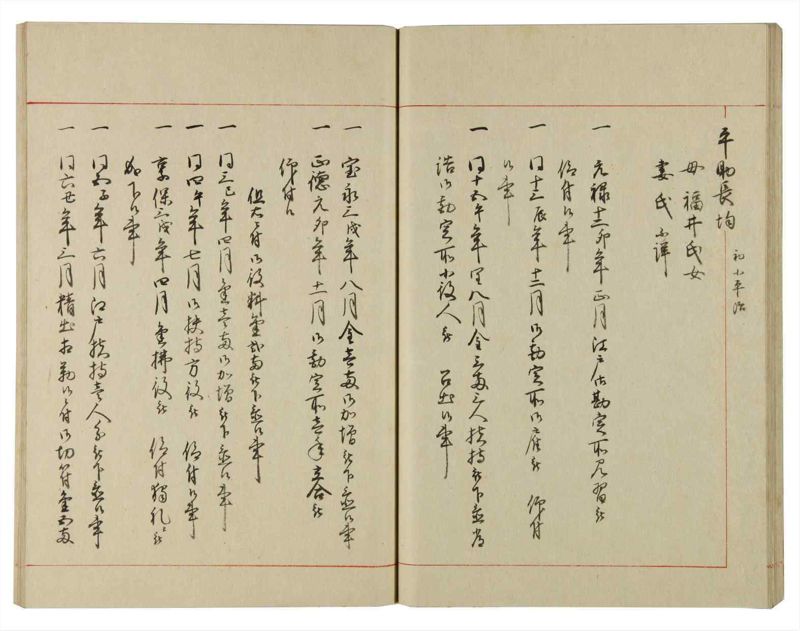 平助長均 初小平治
母 福井氏女
妻 氏不詳
一 元禄十二卯年正月江戸御勘定所見習被
仰付候事
一 同十三辰年十二月御勘定所御雇被 仰付
候事
一 同十五午年八月金三両三人扶持被下置
御勘定所小役人被 召出候事
一 宝永三戌年八月金壱両御加増被下置候事
一 正徳元卯年十二月御勘定所立合被
仰付候
但 御役料金弐両被下置候事
一 同三巳年四月金壱両御加増被下置候事
一 同四午年七月御扶持方役被 仰付候事
一 享保三戌年四月金払役被 仰付独礼
被下候事
一 同五子年六月江戸扶持壱人分被下置候事
一 同六丑年三月精出相勤候付御切符金四両